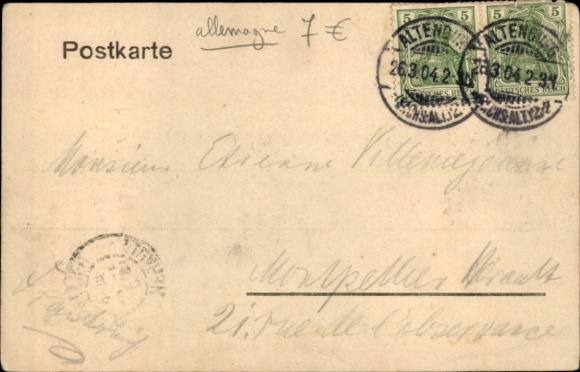 allemagne 7 €
Postkarte
5 5 5 5
ALTENBURG
26.3.04.2-3N
(SACHS.ALT.)
DEUTSCHES REICH
ALTENBURG
26.3.04.2-3N
(SACHS.ALT.)
DEUTSCHES REICH
Monsieur Etienne
Montpellier Hérault
21. rue de l'observance